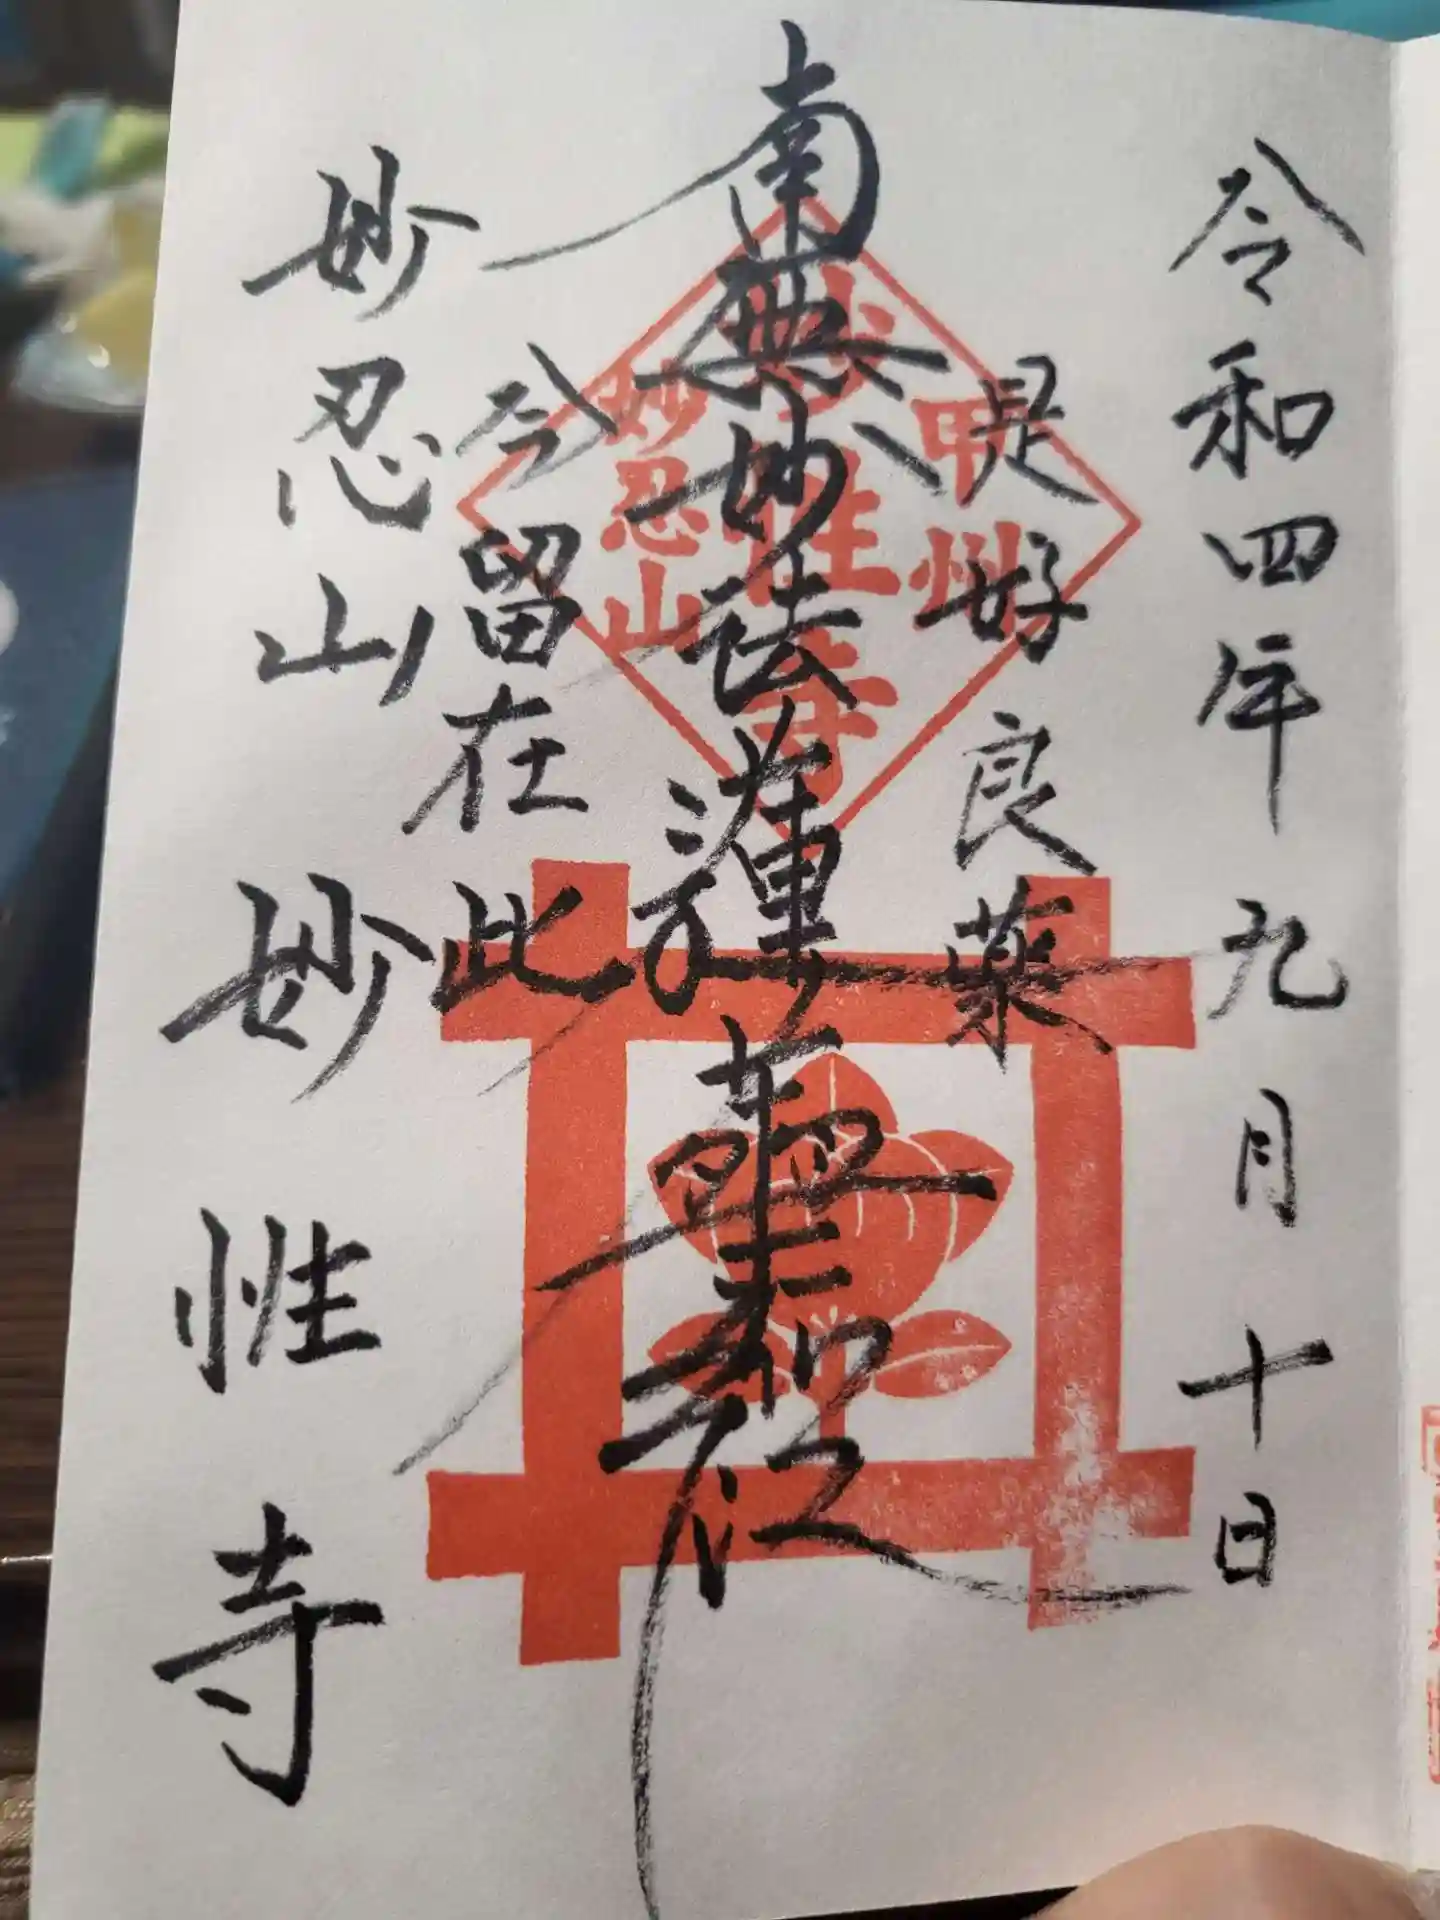 令和四年九月十日
是好良薬
南無妙法蓮華経
今留在此
妙忍山
妙性寺
甲州
妙性寺
妙忍山